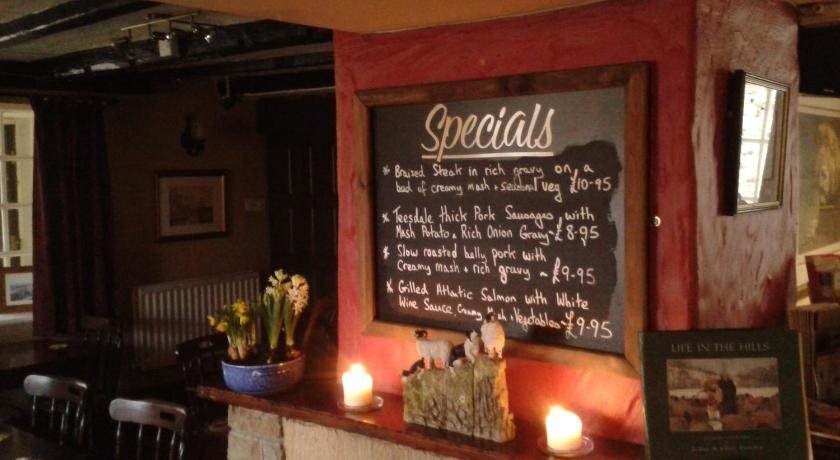 Specials
* Braized Steak in rich gravy on a
bad of creamy mash + seasonal veg £10-95
* Teesdale thick Pork Sausages with
Mash Potato & Rich Onion Gravy ~ £8-95
* Slow roasted belly pork with
Creamy mash + rich gravy ~ £9-95
* Grilled Atlatic Salmon with White
Wine Sauce, Creamy Mash + Vegetables ~ £9-95
LIFE IN THE HILLS